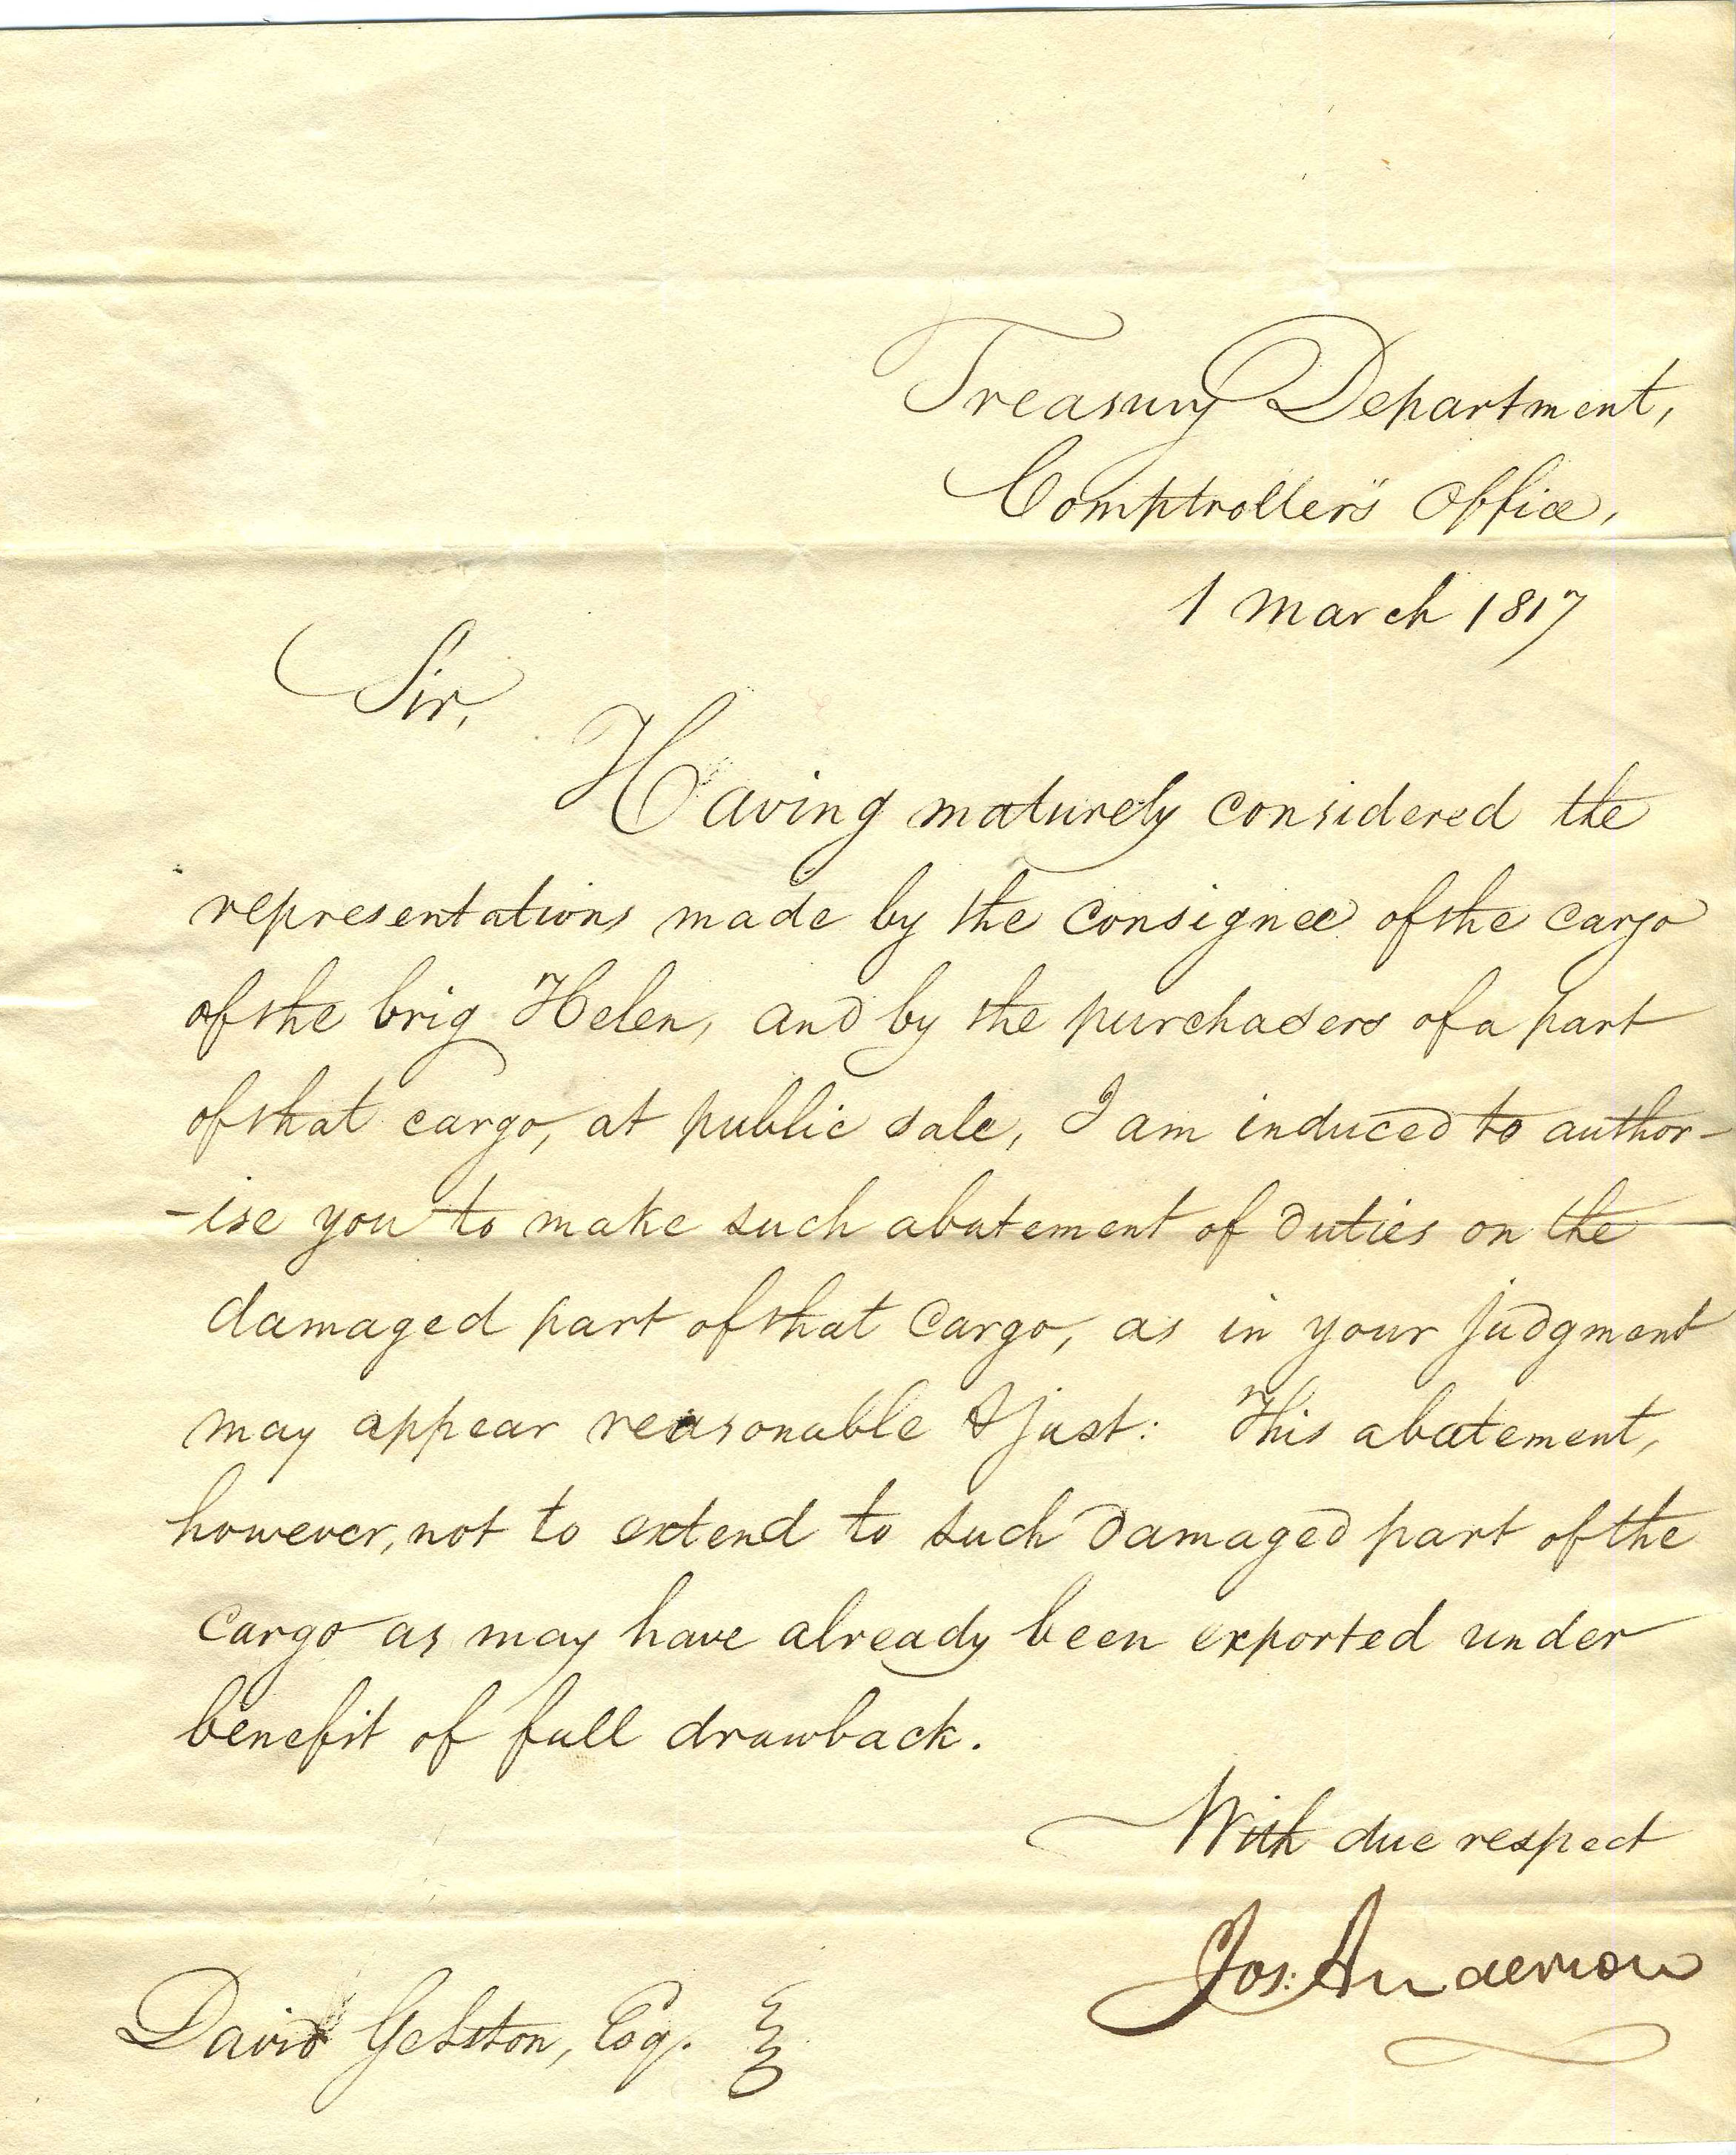 Treasury Department,
Comptroller's Office,
1 March 1817
Sir,
Having maturely considered the
representations made by the consignee of the cargo
of the brig Helen, and by the purchasers of a part
of that cargo, at public sale, I am induced to author-
-ise you to make such abatement of duties on the
damaged part of that cargo, as in your judgment
may appear reasonable & just: This abatement,
however, not to extend to such damaged part of the
cargo as may have already been exported under
benefit of full drawback.
With due respect
Jos: Anderson
David Gelston, Esq.